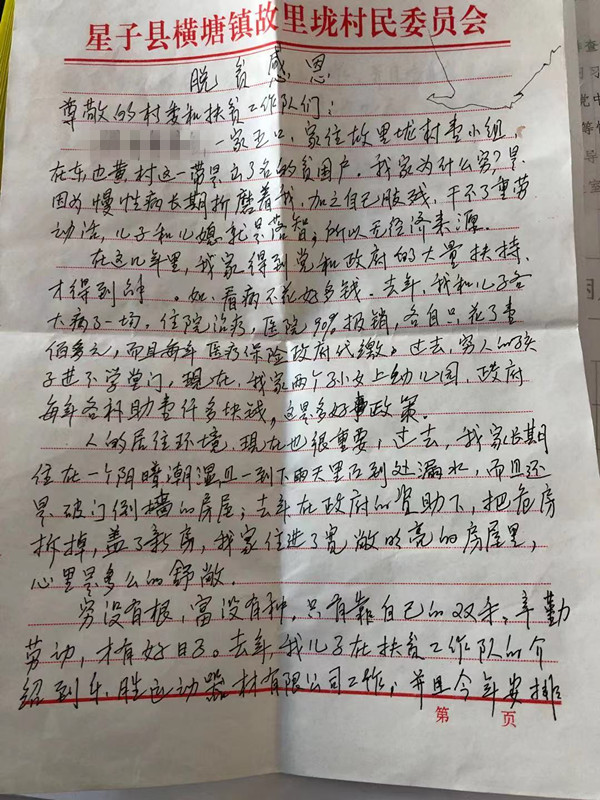 星子县横塘镇故里垅村民委员会
脱贫感恩
尊敬的村委和扶贫工作队们：
一家五口，家住故里垅村壹小组，
在东也黄村这一带是出了名的贫困户。我家为什么穷？是
因为慢性病长期折磨着我，加之自己肢残，干不了重劳
动活，儿子和儿媳就是落智，所以无经济来源。
在这几年里，我家得到党和政府的大量扶持，
才得到。如，看病不花好多钱。去年，我和儿子各
大病了一场，住院治疗，医院90%报销，各自只花了壹
佰多元，而且每年医疗保险政府代缴。过去，穷人的孩
子进不学堂门，现在，我家两个孙女上幼儿园，政府
每年各补助壹仟多块钱，这是多好政策。
人的居住环境，现在也很重要，过去，我家长期
住在一个阴暗潮湿且一到下雨天里面到处漏水，而且还
是破门倒墙的房屋；去年在政府的资助下，把危房
拆掉，盖了新房，我家住进了宽敞明亮的房屋里，
心里是多么的舒敞。
穷没有根，富没有种，只有靠自己的双手，辛勤
劳动，才有好日子。去年，我儿子在扶贫工作队的介
绍到胜运动器材有限公司工作；并且今年安排
第 页